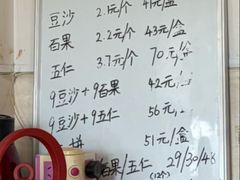 豆沙 2.1元/个 41元/盒
百果 2.2元/个 43元/盒
五仁 3.7元/个 70元/盒
9豆沙+9百果 42元/
9豆沙+9五仁 56元/
拼 51元/盒
百果/五仁 29/30/48
(12个)